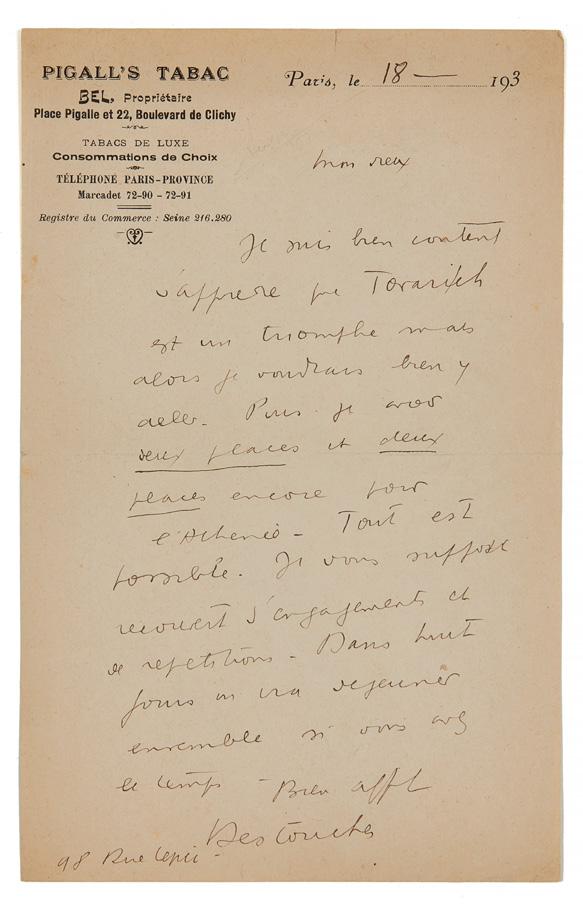 PIGALL'S TABAC
BEL, Propriétaire
Place Pigalle et 22, Boulevard de Clichy
TABACS DE LUXE
Consommations de Choix
TÉLÉPHONE PARIS-PROVINCE
Marcadet 72-90 - 72-91
Registre du Commerce : Seine 216.280
Paris, le 18 — 193
Mon vieux
Je suis bien content
d'apprendre que Tovaritch
est un triomphe mais
alors je voudrais bien y
aller. Puis je avoir
deux places et deux
places encore pour
l'Athenée - Tout est
possible. Je vous suppose
recouvert d'engagements et
de repetitions - Dans huit
jours on ira dejeuner
ensemble si vous avez
le temps - Bien afft
Destouches
98 Rue Lepic -